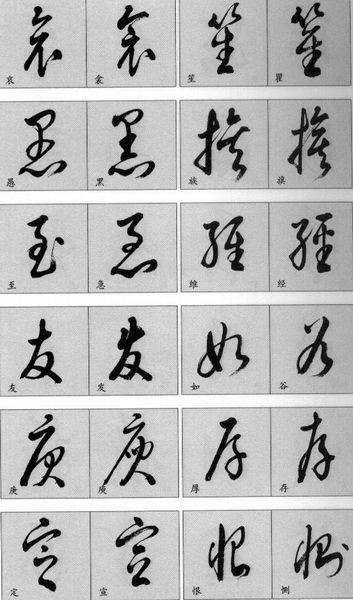 哀 衾 笙 瞿
愚 黑 族 旗
至 急 维 经
友 发 如 谷
庚 庾 厚 存
定 宣 恨 恻